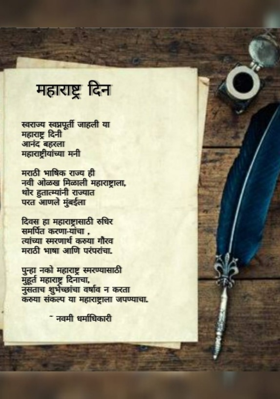 महाराष्ट्र दिन
स्वराज्य स्वप्नपूर्ती जाहली या
महाराष्ट्र दिनी
आनंद बहरला
महाराष्ट्रीयांच्या मनी
मराठी भाषिक राज्य ही
नवी ओळख मिळाली महाराष्ट्राला,
थोर हुतात्म्यांनी राज्यात
परत आणले मुंबईला
दिवस हा महाराष्ट्रासाठी रुधिर
समर्पित करणा-यांचा ,
त्यांच्या स्मरणार्थ करुया गौरव
मराठी भाषा आणि परंपरांचा.
पुन्हा नको महाराष्ट्र स्मरण्यासाठी
मुहूर्त महाराष्ट्र दिनाचा,
नुसताच शुभेच्छांचा वर्षाव न करता
करुया संकल्प या महाराष्ट्राला जपण्याचा.
- नवमी धर्माधिकारी